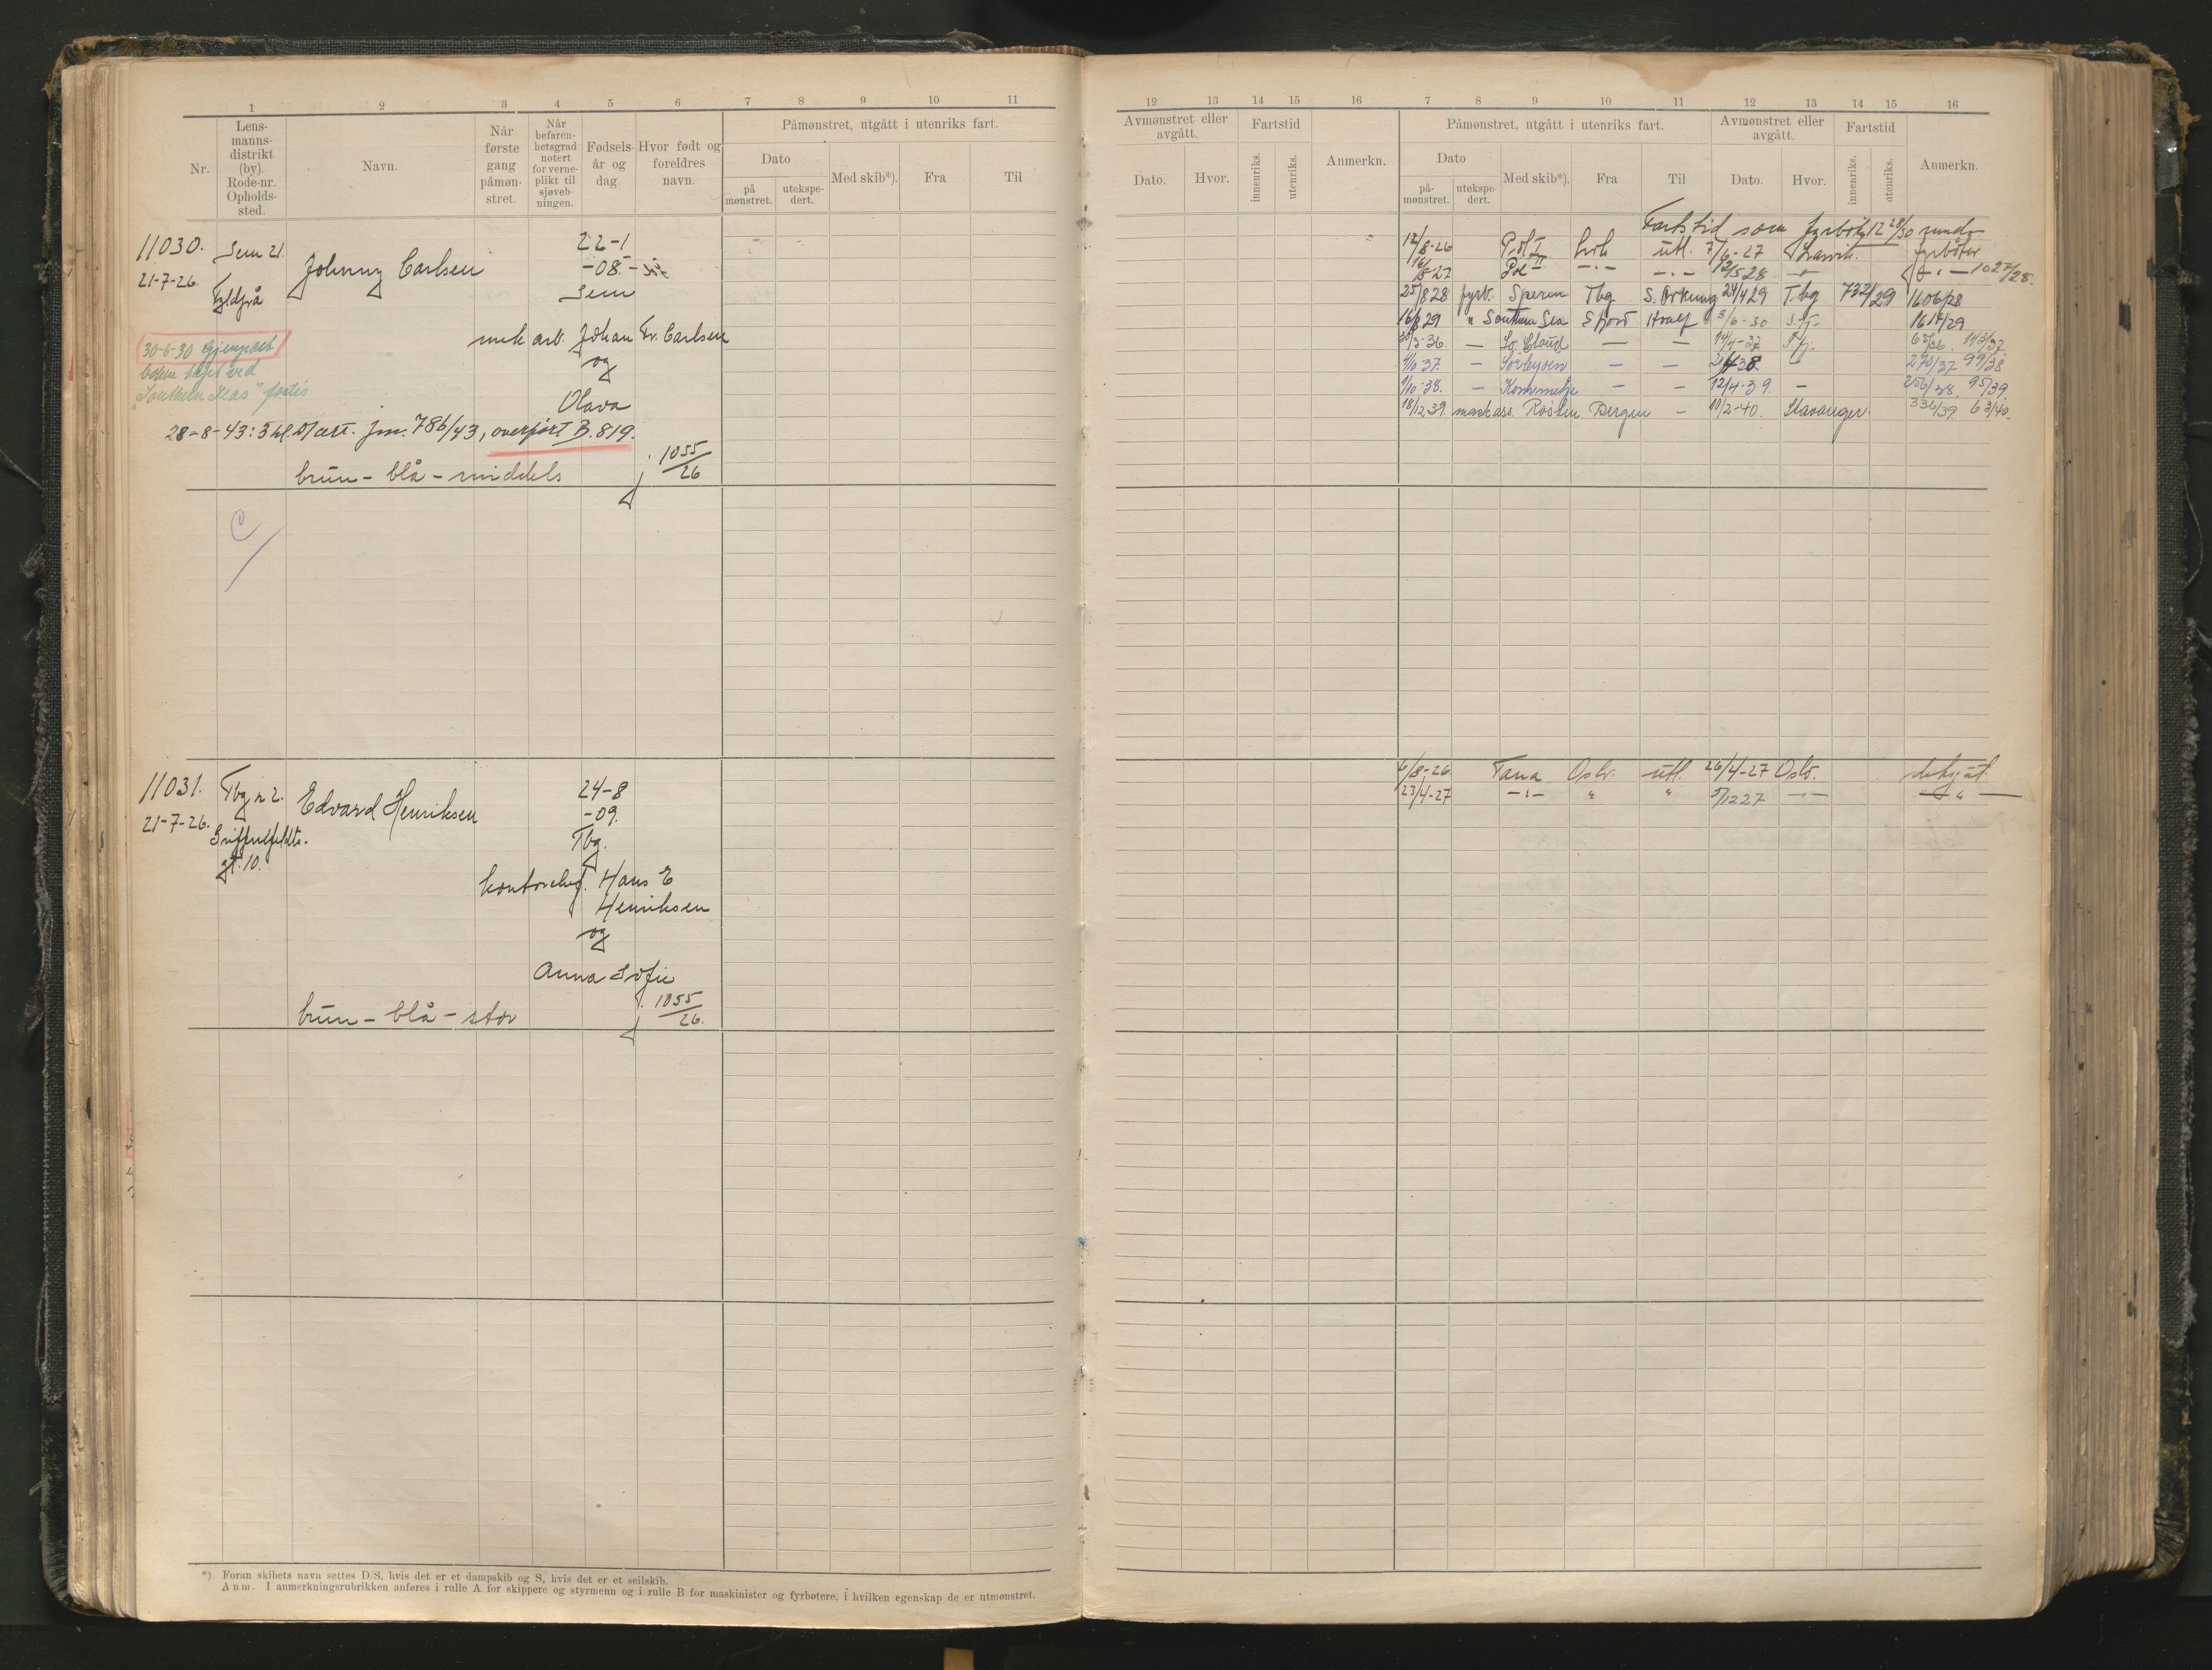 1 2 3 4 5 6 7 8 9 10 11
Nr.
Lens-
manns-
distrikt
(by).
Rode-nr.
Opholds-
sted.
Navn.
Når
første
gang
påmøn-
stret.
Når
befaren-
hetsgrad
notert
for verne-
plikt til
sjøveb-
ningen.
Fødsels-
år og
dag
Hvor født og
foreldres
navn.
Påmønstret, utgått i utenriks fart.
Dato
på
mønstret.
utekspe-
dert.
Med skib*).
Fra
Til
11030.
21-7-26.
Sem 21.
Johnny Carlsen
22-1
-08.
Sem
mek arb. Johan Fr. Carlsen
og
Olava
30-6-30 Gjenpart
ved
28-8-43: jnr. 786/43, overført B.819.
brun - blå - middels
j. 1055/26
C
11031.
21-7-26.
Tbg r 2.
Griffenfeldts.
gt. 10.
Edvard Henriksen
24-8
-09.
Tbg.
Hans E
Henriksen
og
Anna Sofie
brun - blå - stor
j. 1055/26.
*) Foran skibets navn settes D/S, hvis det er et dampskib og S, hvis det er et seilskib.
Anm. I anmerkningsrubrikken anføres i rulle A for skippere og styrmenn og i rulle B for maskinister og fyrbøtere, i hvilken egenskap de er utmønstret.
12 13 14 15 16 7 8 9 10 11 12 13 14 15 16
Avmønstret eller
avgått.
Dato.
Hvor.
Fartstid
innenriks.
utenriks.
Anmerkn.
Påmønstret, utgått i utenriks fart.
Dato
på-
mønstret.
utekspe-
dert.
Med skib*).
Fra
Til
Avmønstret eller
avgått.
Dato.
Hvor.
Fartstid
innenriks.
utenriks.
Anmerkn.
Fartstid som fyrbøter 12 28/30 mndr
12/8-26 Pol I Lvik utl. 7/6-27 Larvik. fyrbøter
16/8-27 Pol II -"- -"- 12/5 28 -"- -"- 1027/28.
25/8 28 fyrb. Speren Tbg S. Orkney 24/4 29 T.bg 732/29 1606/28
16/8 29 " Southern Sea Sfjord Hvalf 3/6-30 S.fj. 1614/29
— — — 14/4-37
4/10-37. — Sörbyen — — —
270/37 99/38
1/10-38. — Kommmetje — — 12/4-39. —
256/38 95/39.
18/12 39. mask.ass. Røslen Bergen — 10/2-40. Stavanger. 336/39. 63/40.
6/8-26. Tana Oslo. utl. 26/4-27 Oslo. dekgåt.
23/4-27 -"- " " 5/12 27 -"- — " —